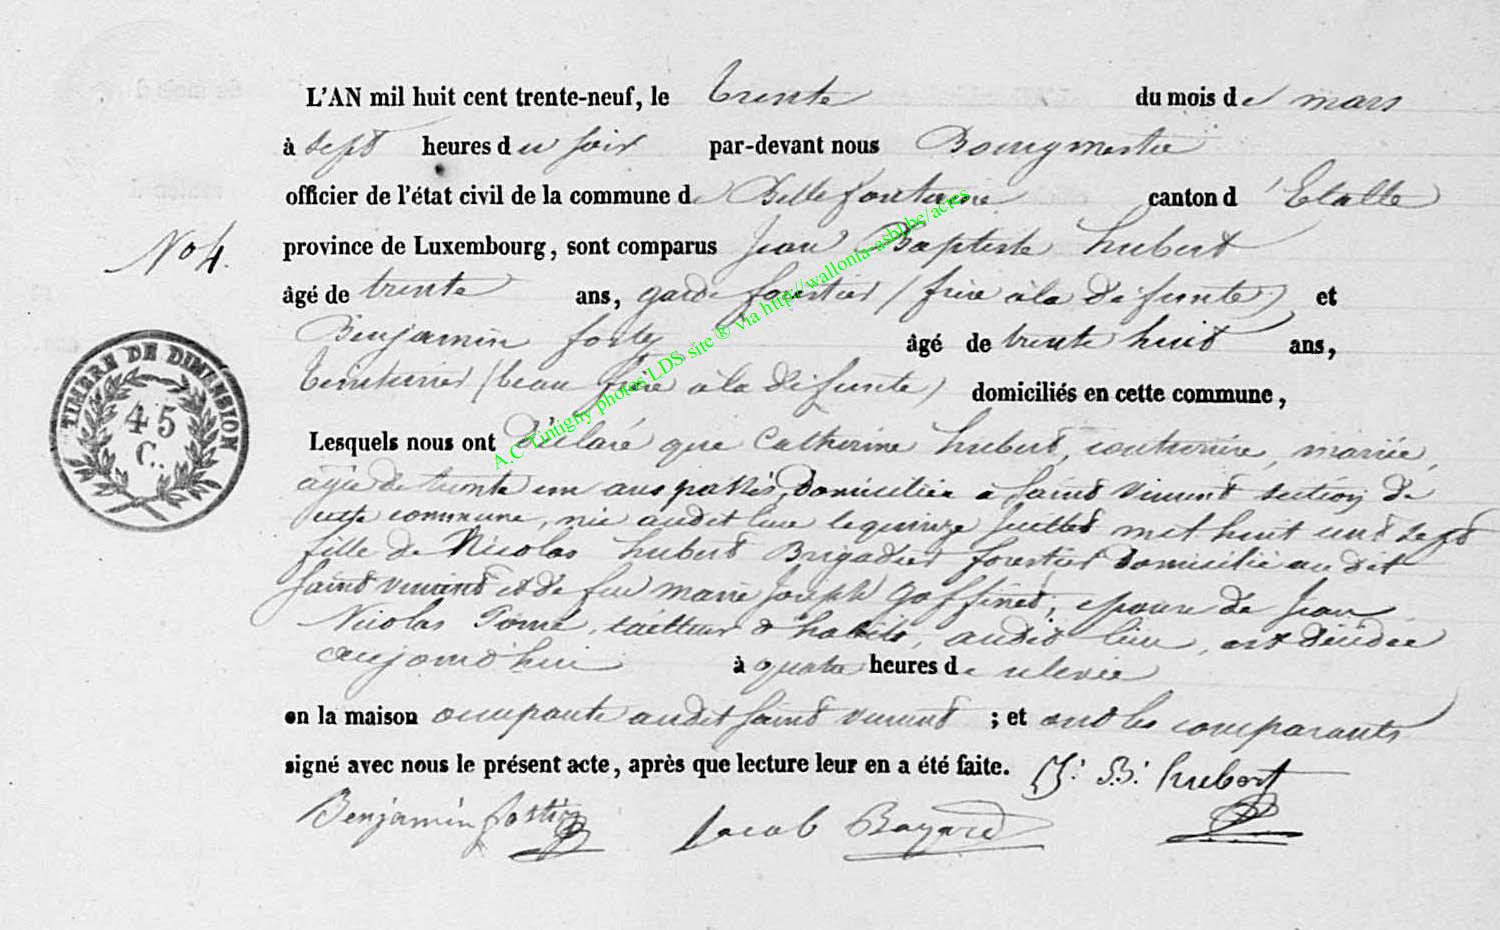 L'AN mil huit cent trente-neuf, le trente du mois de mars
à sept heures du soir par-devant nous Bourgmestre
officier de l'état civil de la commune de Bellefontaine canton d'Etalle
No 4. province de Luxembourg, sont comparus Jean Baptiste hubert
âgé de trente ans, garde forestier (frère à la défunte) et
Benjamin âgé de trente huit ans,
teinturier (beau frère à la défunte) domiciliés en cette commune,
Lesquels nous ont déclaré que Catherine hubert, couturière, mariée,
agée de trente un ans passés, domiciliée à Saint vincent section de
cette commune, née audit lieu le quinze juillet mil huit cent sept
fille de Nicolas hubert Brigadier forestier domicilié au dit
Saint vincent et de feu marie joseph goffinet, epouse de Jean
Nicolas tailleur d'habits, audit lieu, est décédée
aujourd'hui à quatre heures de relevée
en la maison occupante audit Saint vincent ; et ont les comparants
signé avec nous le présent acte, après que lecture leur en a été faite. J. B. hubert
Benjamin Jacob Bayard
TIMBRE DE DIMENSION
45
C.
A.C. Tintigny photos LDS. site ® via http://wallonia-asbl.be/actes